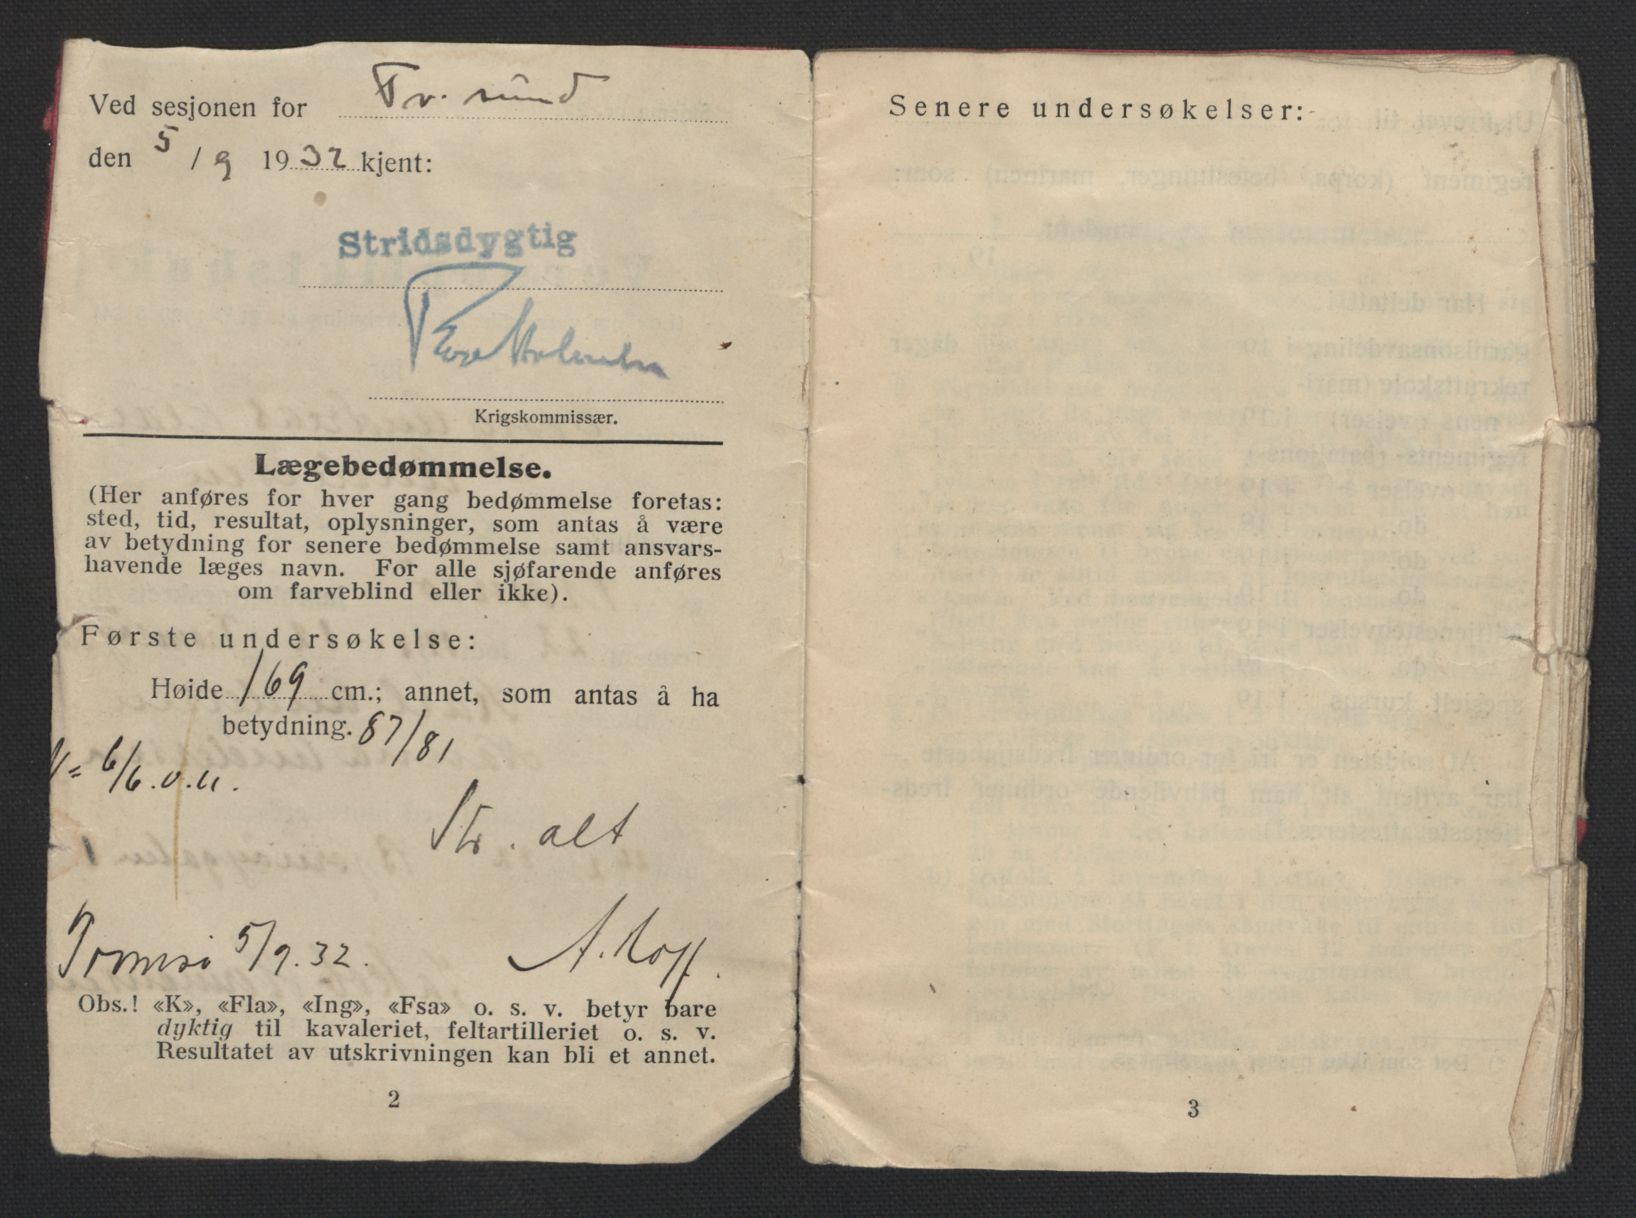 Ved sesjonen for Tr. sund
den 5/9 1932 kjent:
Stridsdygtig
Krigskommissær.
Lægebedømmelse.
(Her anføres for hver gang bedømmelse foretas:
sted, tid, resultat, oplysninger, som antas å være
av betydning for senere bedømmelse samt ansvars-
havende læges navn. For alle sjøfarende anføres
om farveblind eller ikke).
Første undersøkelse:
Høide 169 cm.; annet, som antas å ha
betydning. 87/81
V = 6/6. o. u.
Str. alt
Tromsø 5/9. 32. A. Hoff.
Obs.! «K», «Fla», «Ing», «Fsa» o. s. v. betyr bare
dyktig til kavaleriet, feltartilleriet o. s. v.
Resultatet av utskrivningen kan bli et annet.
2
Senere undersøkelser:
3